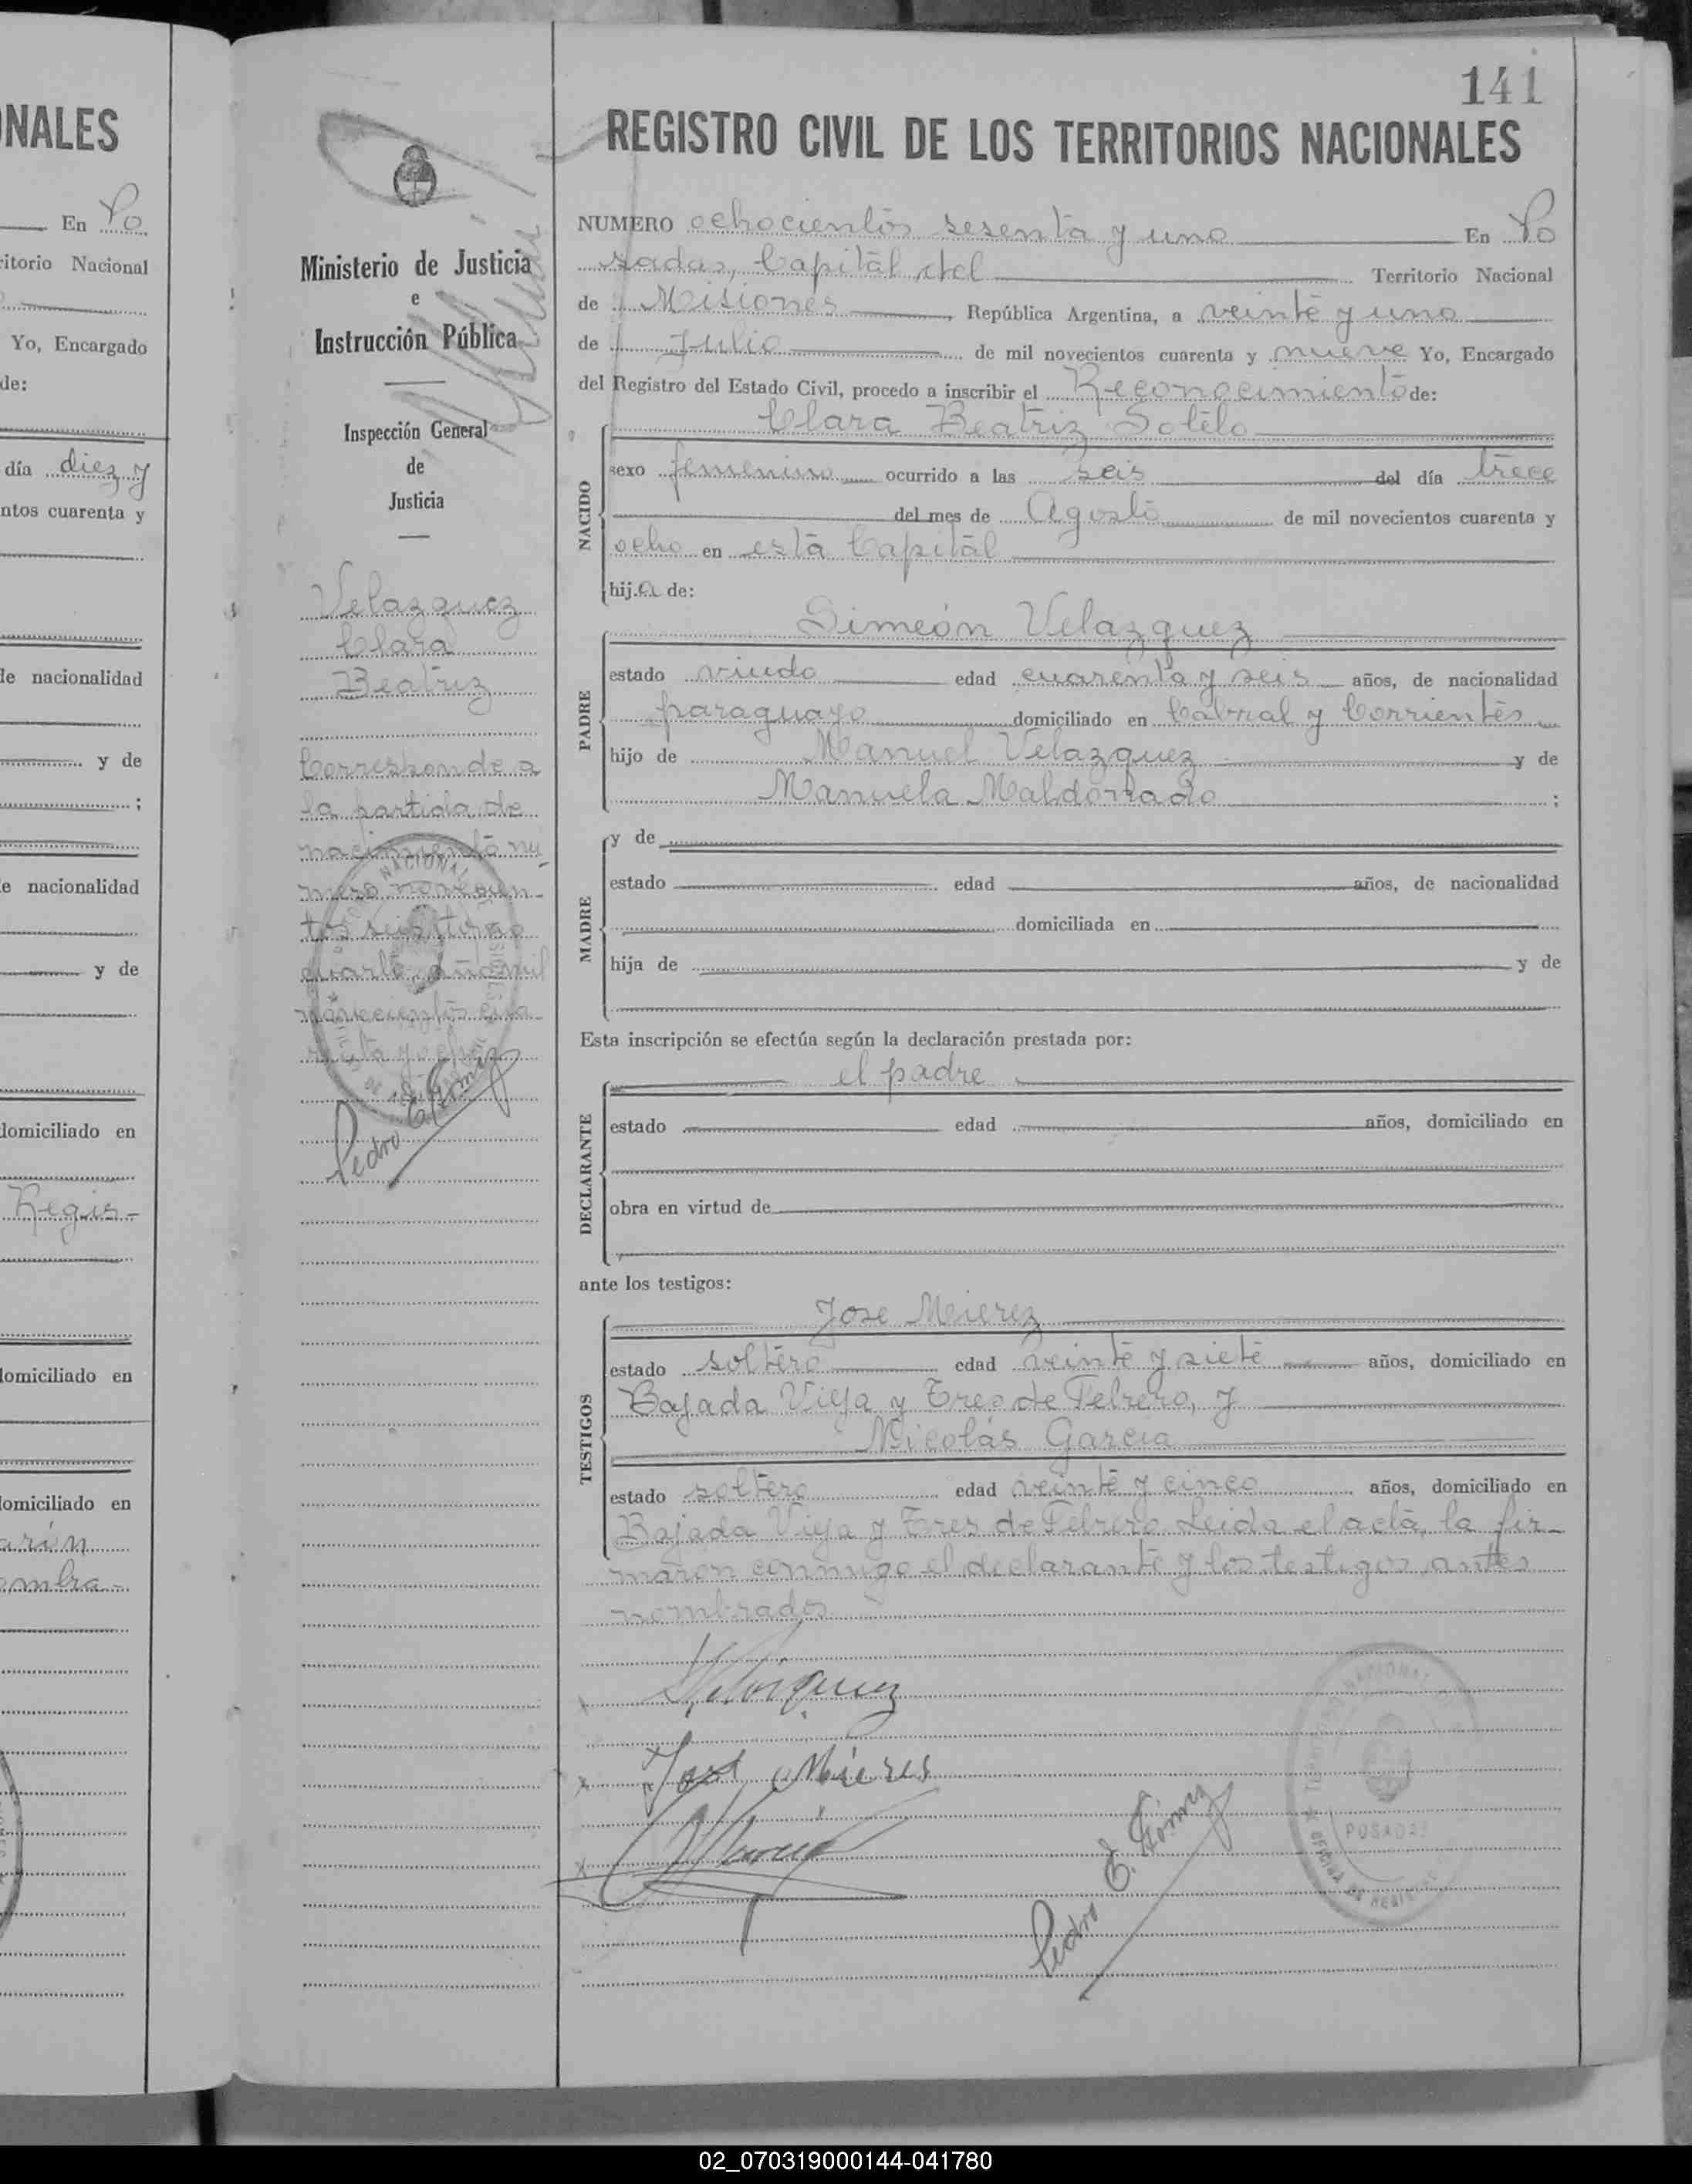 141
REGISTRO CIVIL DE LOS TERRITORIOS NACIONALES
NUMERO ochocientos sesenta y uno En Po
sadas, Capital del Territorio Nacional
de Misiones, República Argentina, a veinte y uno
de Julio de mil novecientos cuarenta y nueve Yo, Encargado
del Registro del Estado Civil, procedo a inscribir el Reconocimiento de:
Clara Beatriz Sotelo
NACIDO
sexo femenino ocurrido a las seis del día trece
del mes de Agosto de mil novecientos cuarenta y
ocho en esta Capital
hija de:
PADRE
Simeón Velazquez
estado viudo edad cuarenta y seis años, de nacionalidad
paraguayo domiciliado en Cabral y Corrientes
hijo de Manuel Velazquez y de
Manuela Maldonado ;
MADRE
y de
estado edad años, de nacionalidad
domiciliada en
hija de y de
Esta inscripción se efectúa según la declaración prestada por:
el padre
DECLARANTE
estado edad años, domiciliado en
obra en virtud de
ante los testigos:
TESTIGOS
Jose Mierez
estado soltero edad veinte y siete años, domiciliado en
Bajada Vieja y Tres de Febrero, y
Nicolás Garcia
estado soltero edad veinte y cinco años, domiciliado en
Bajada Vieja y Tres de Febrero. Leida el acta, la fir-
maron conmigo el declarante y los testigos antes
nombrados
Velazquez
Jose Mieres
Pedro E. Gómez
POSADAS
Ministerio de Justicia
e
Instrucción Pública
Inspección General
de
Justicia
Velazquez
Clara
Beatriz
Corresponde a
la partida de
nacimiento nú
mero novecien-
tos seis tomo
cuarto, año mil
novecientos cua
renta y ocho
Pedro E. Gómez
NALES
En Po
ritorio Nacional
Yo, Encargado
de:
día diez y
ntos cuarenta y
de nacionalidad
y de
;
e nacionalidad
y de
domiciliado en
Regis-
domiciliado en
domiciliado en
arón
ombra-
02_070319000144-041780